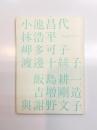 小池昌代
林浩平
岬多可子
渡邊十絲子
飯島耕一
吉増剛造
與謝野文子